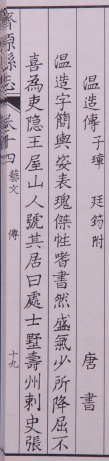 温造傳子璋　廷筠附　唐書
温造字簡輿姿表瑰傑性嗜書然盛氣少所降屈不
喜為吏隐王屋山人號其居曰處士墅壽州刺史張
濟源縣志　卷十四　藝文　傳　十九